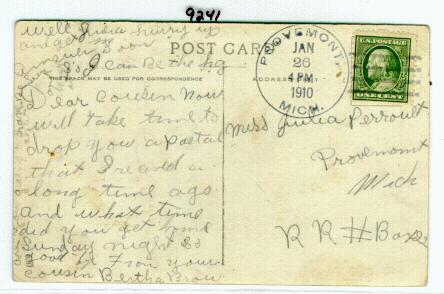 9241
well Julia hurry up
and get
soon
So I can be the
POST CARD
THIS SPACE MAY BE USED FOR CORRESPONDENCE
PROVEMONT
JAN
26
4 PM
1910
MICH.
U.S. POSTAGE
ONE CENT
Dear Cousin Now
will take time to
drop you a Postal
that I read a
long time ago
and what time
did you get home
Sunday night So
good by From your
cousin Bertha Brow
Miss Julia Perroult
Provemont
Mich
R R # Box 22